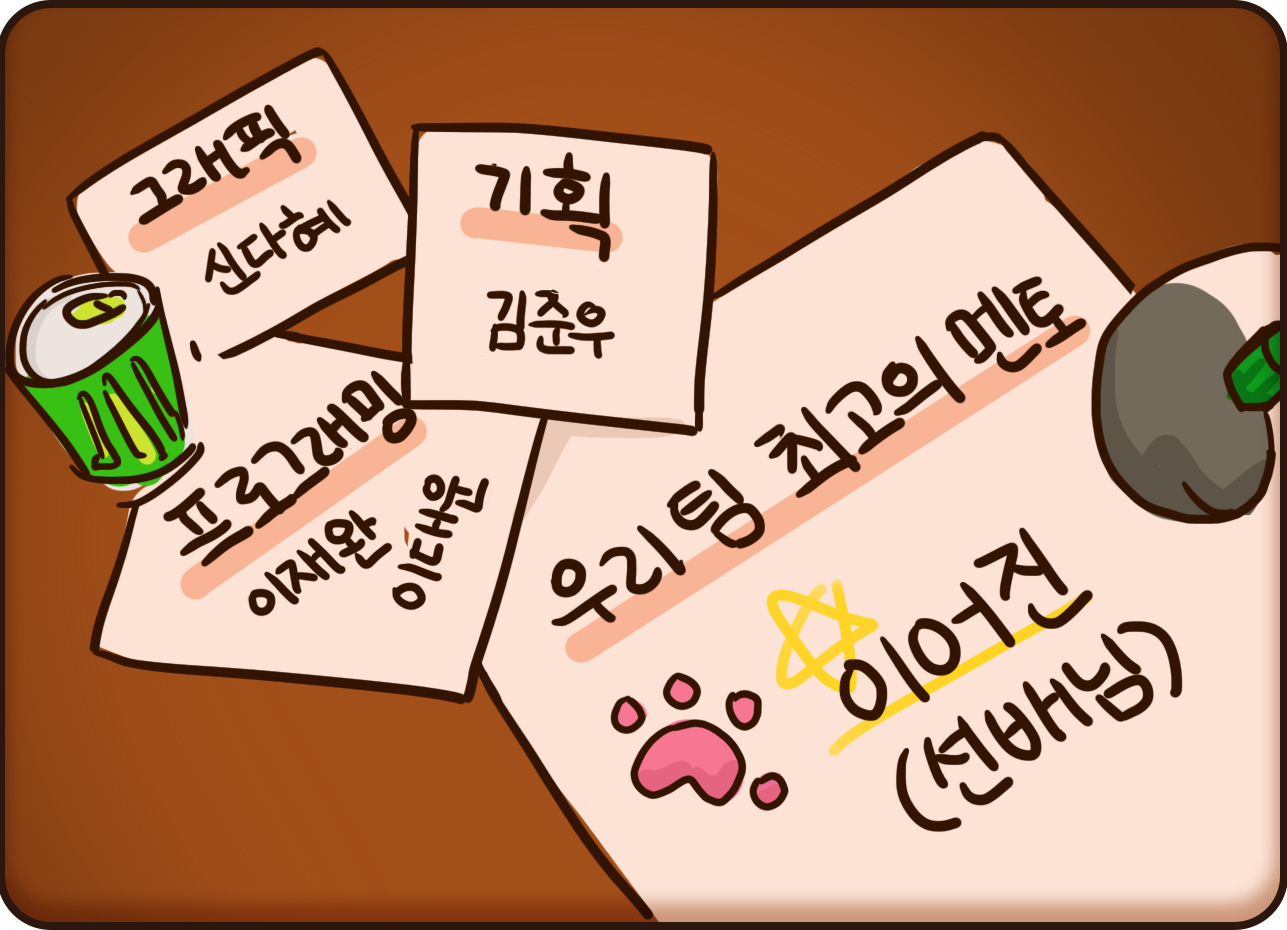 그래픽
신다혜
기획
김준우
프로그래밍
이재완
이대원
우리 팀 최고의 멘토
이어진
(선배님)